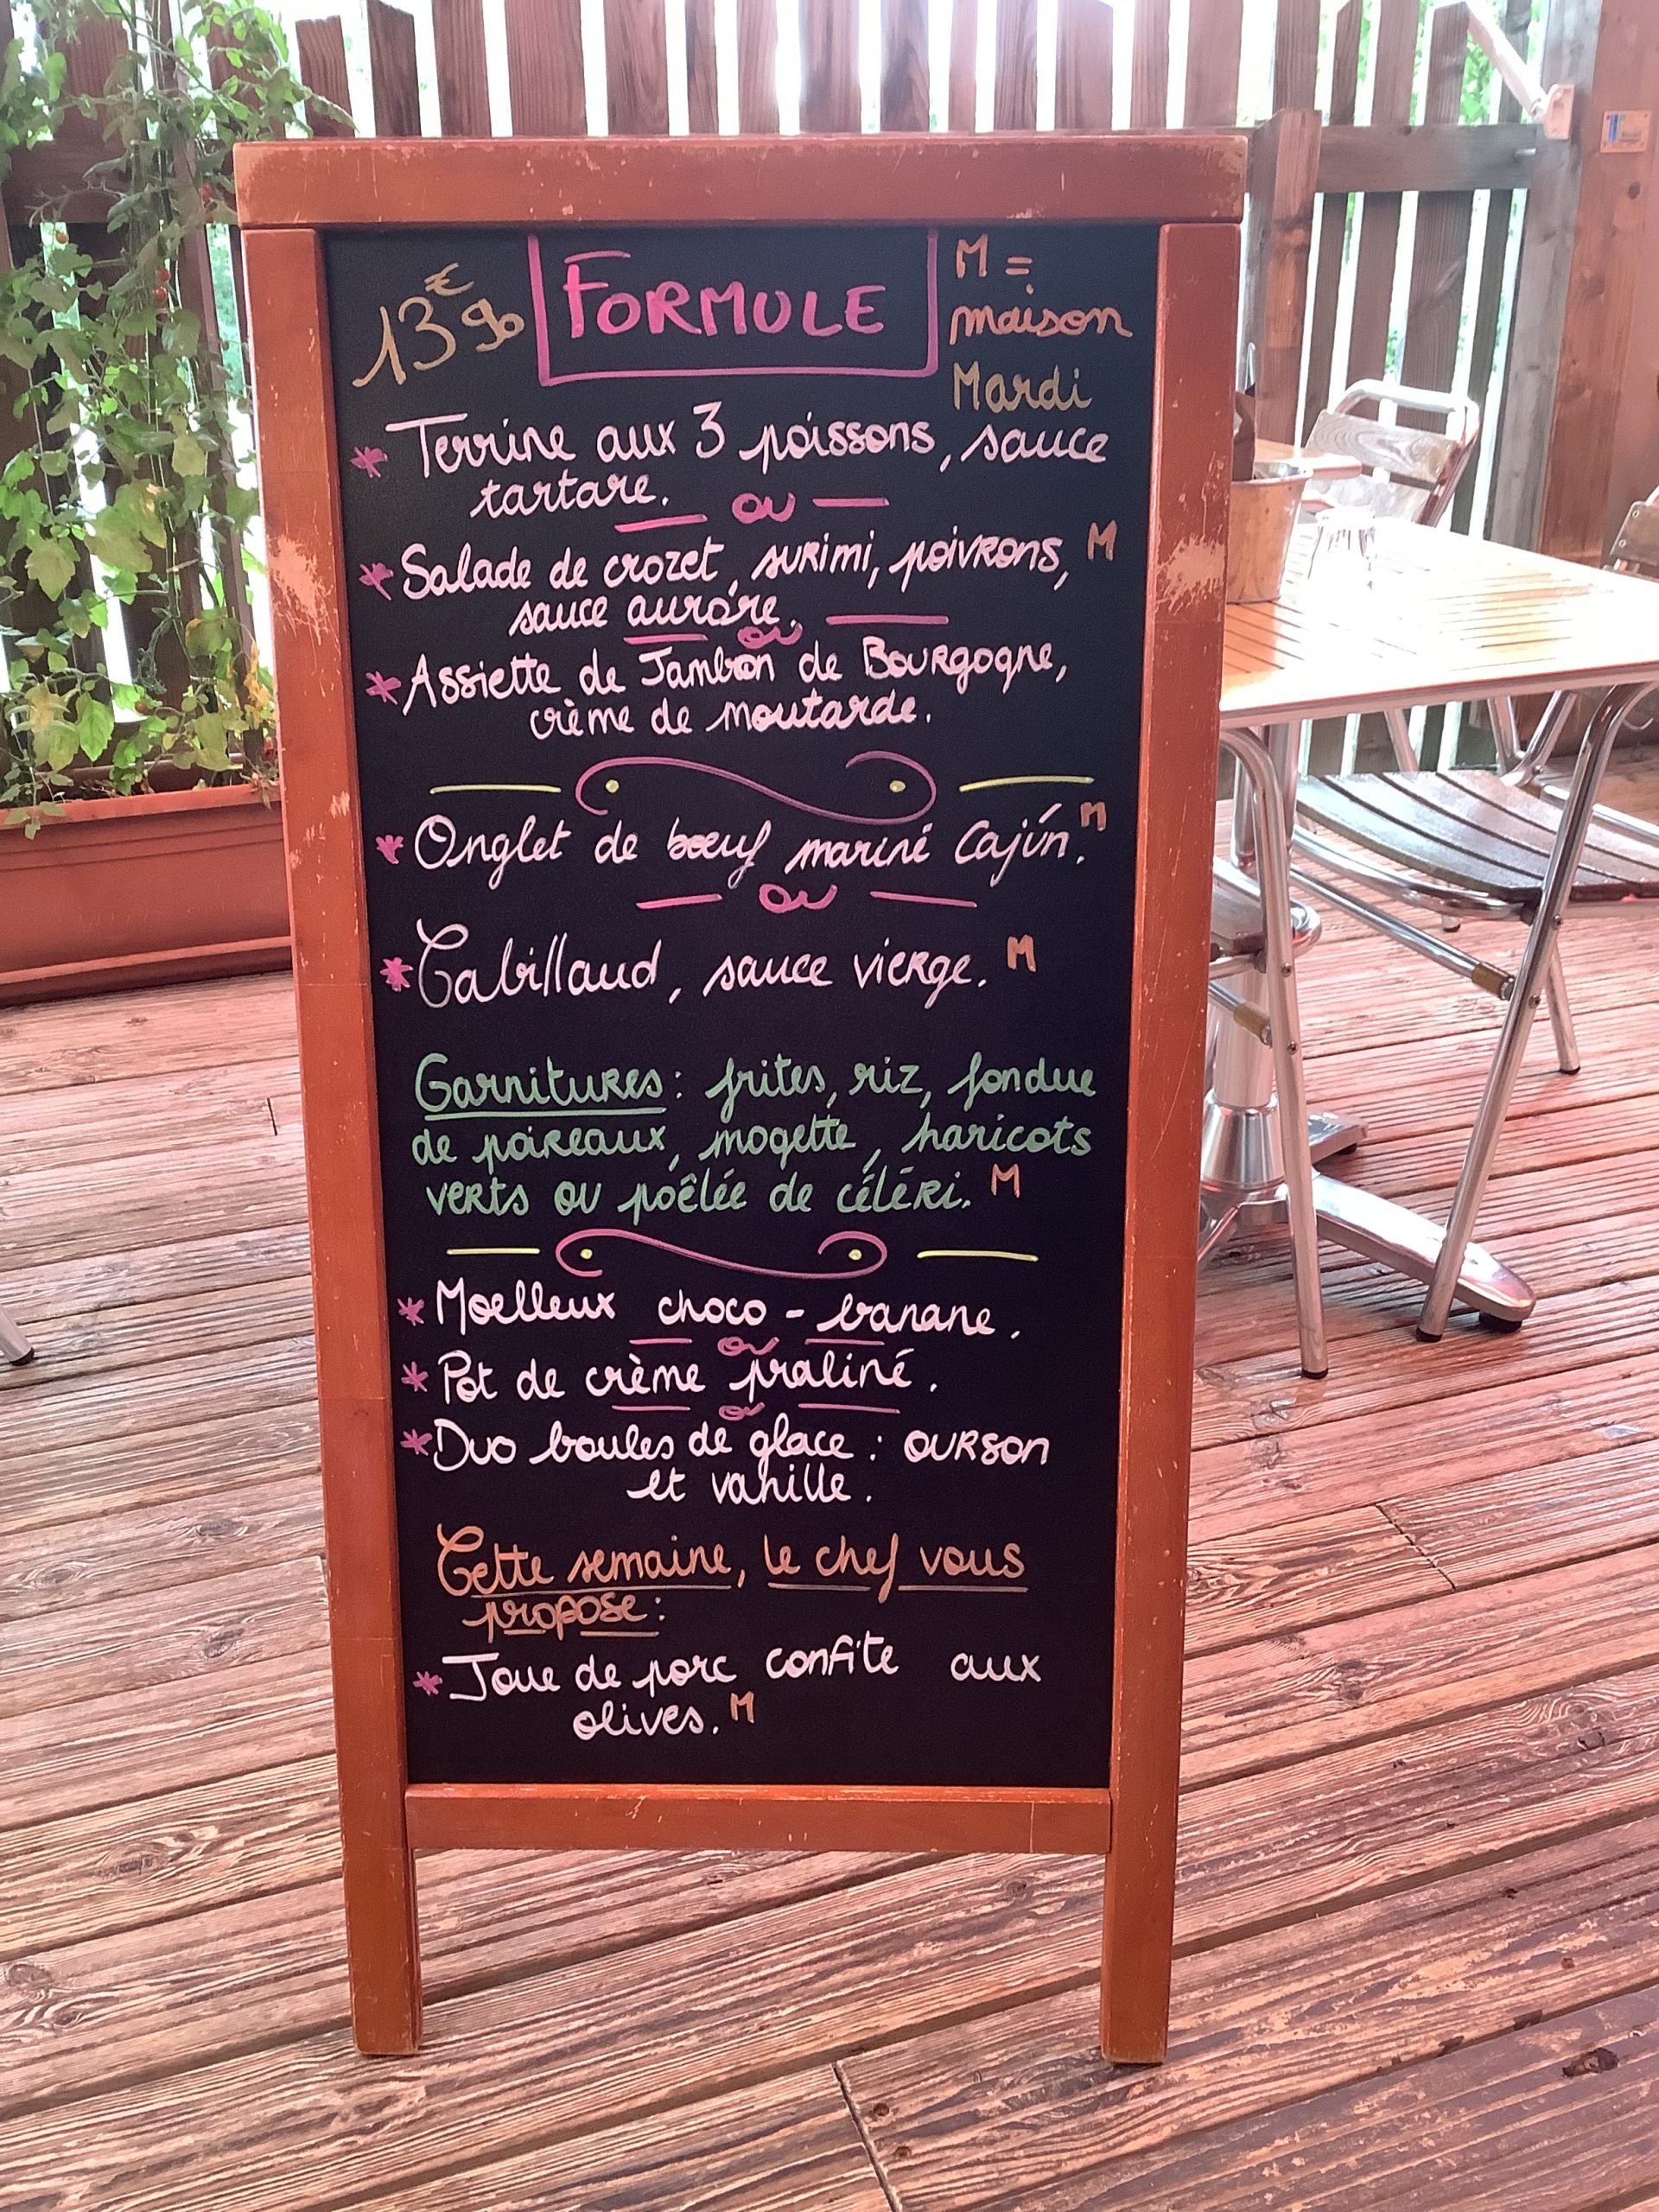 13€90 FORMULE M =
maison
Mardi
* Terrine aux 3 poissons, sauce
tartare.
— ou —
* Salade de crozet, surimi, poivrons, M
sauce aurore.
— ou —
* Assiette de Jambon de Bourgogne,
crème de moutarde.
* Onglet de bœuf mariné Cajún. M
— ou —
* Cabillaud, sauce vierge. M
Garnitures : frites, riz, fondue
de poireaux, mogette, haricots
verts ou poêlée de céléri. M
* Moelleux choco - banane.
— ou —
* Pot de crème praliné.
— ou —
* Duo boules de glace : ourson
et vanille.
Cette semaine, le chef vous
propose :
* Joue de porc confite aux
olives. M